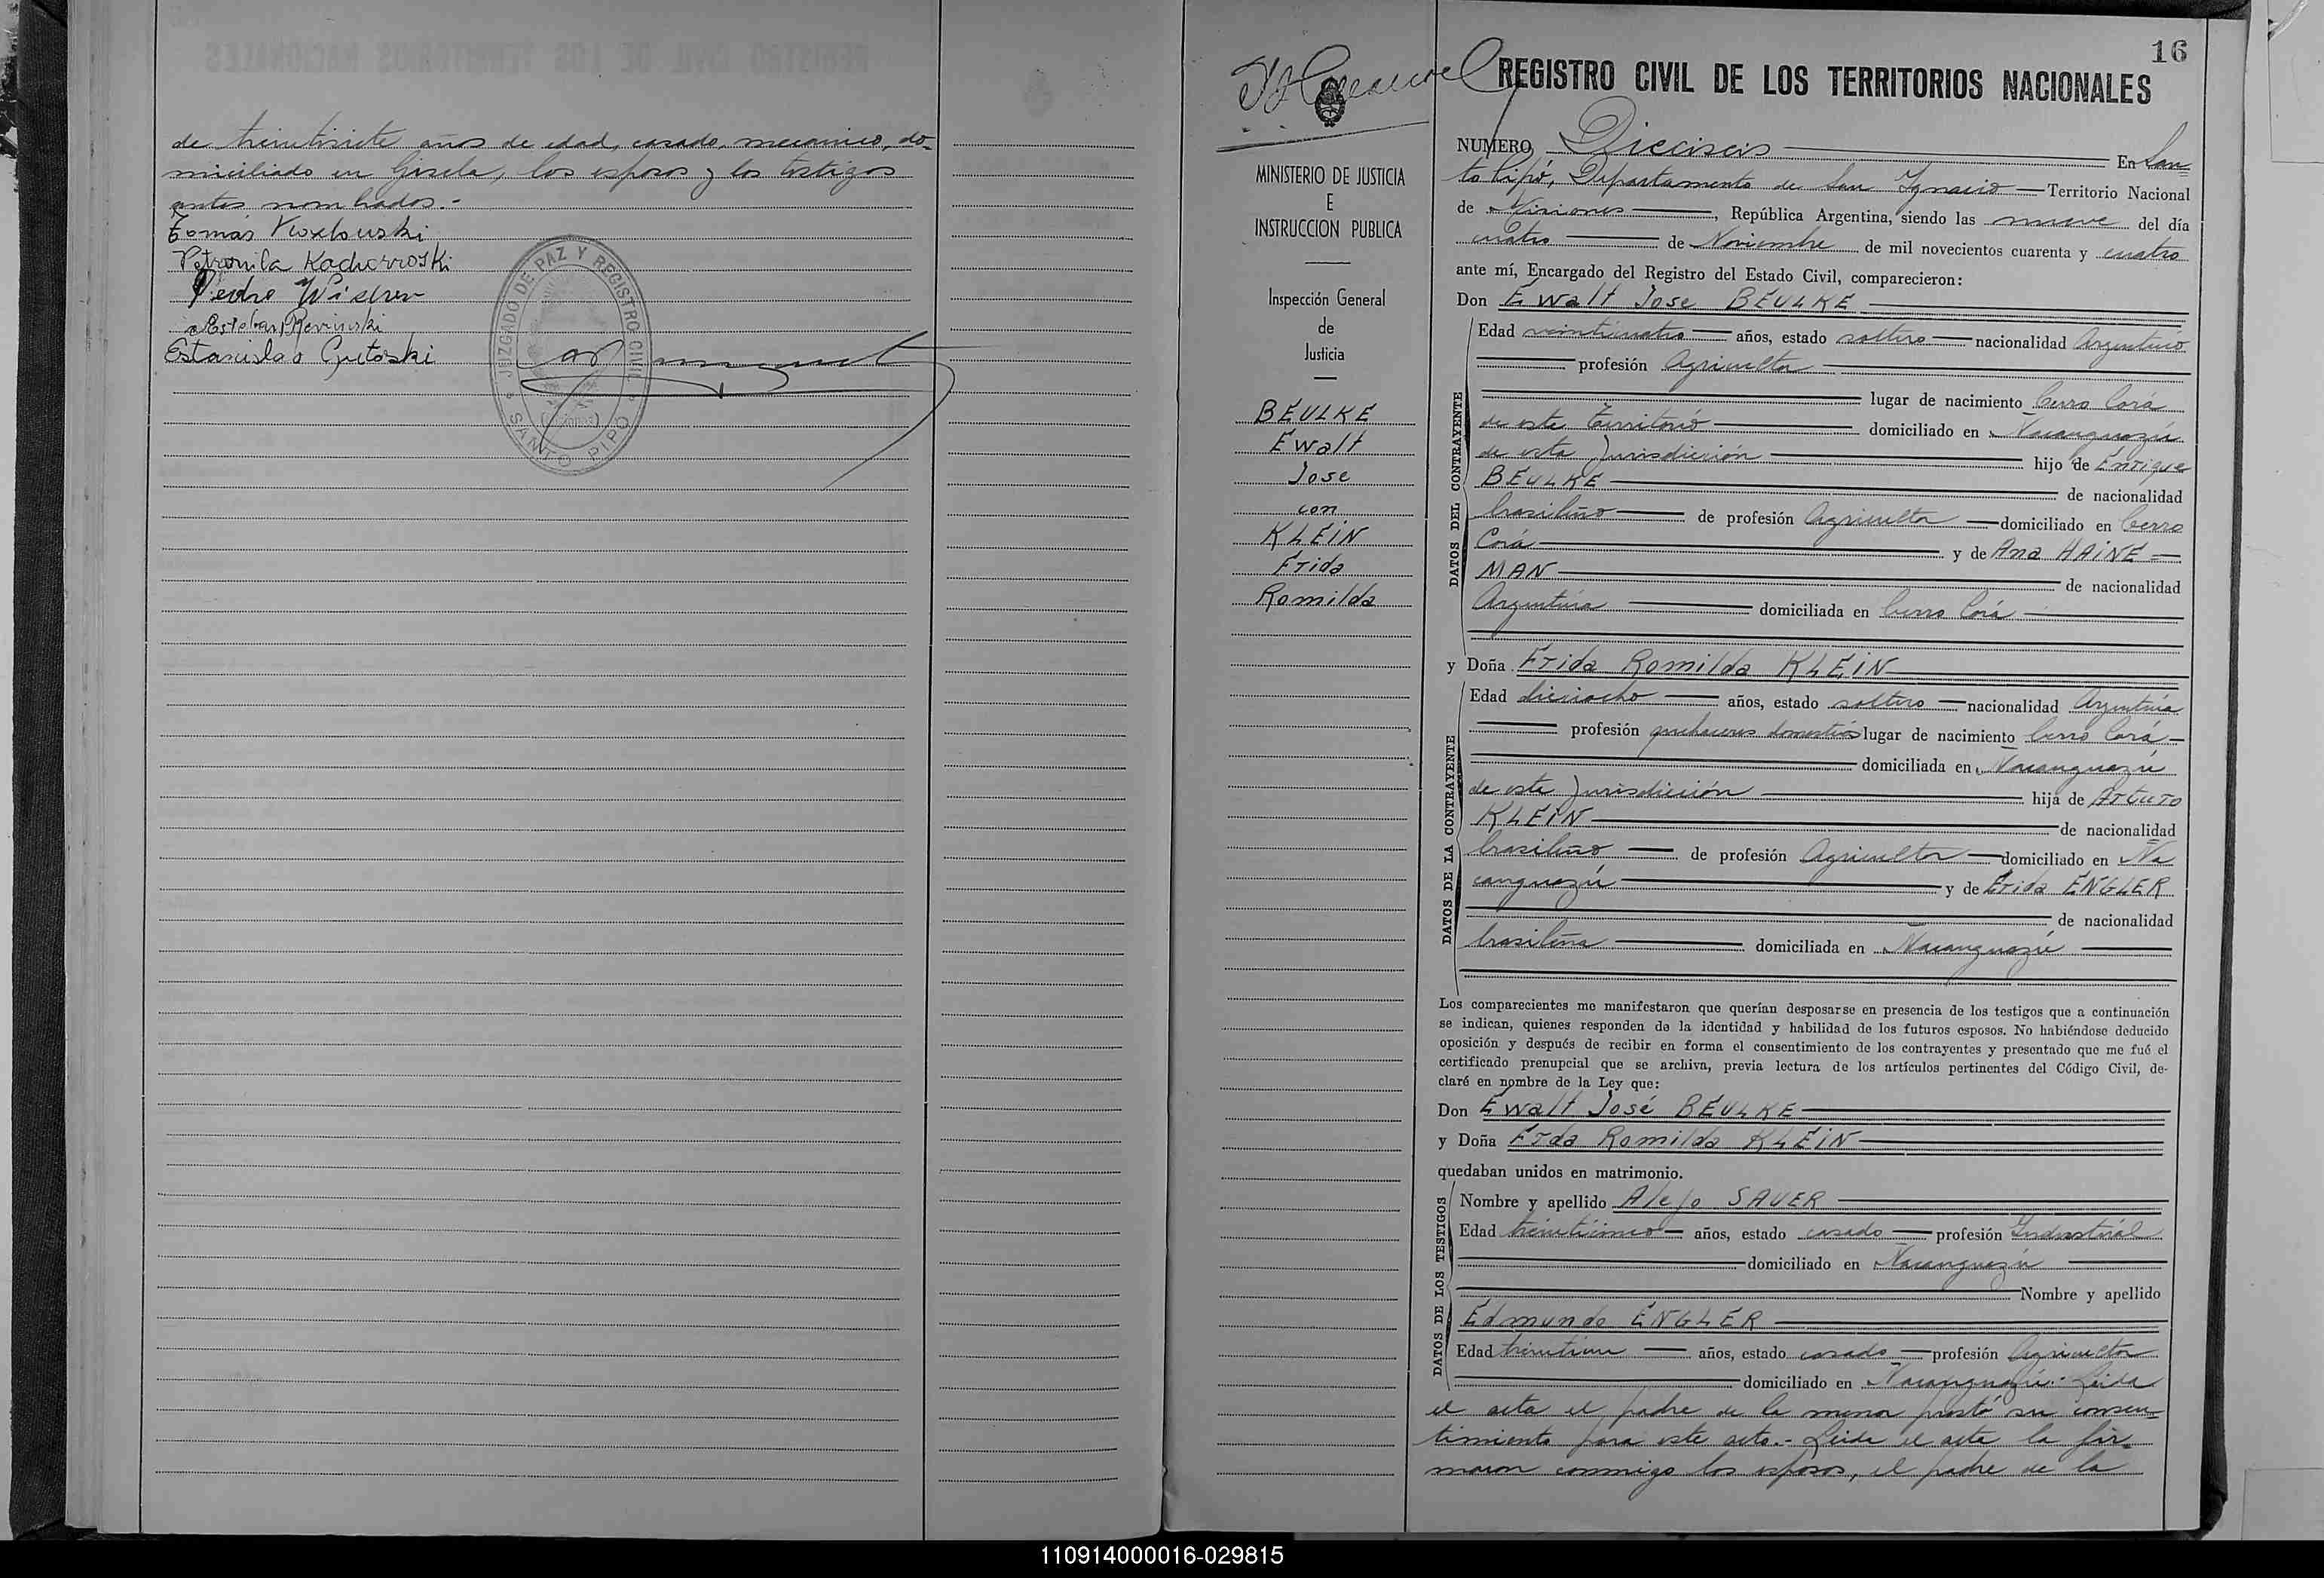 de treintisiete años de edad, casado, mecanico, do-
miciliado en Gisela, los esposos y los testigos
antes nombrados.-
Tomás Kozlouski
Petronila Kochorroski
Pedro Wischer
Esteban Reviuski
Estanislao Gutoski
JUZGADO DE PAZ Y REGISTRO CIVIL
(Misiones)
SANTO PIPÓ
16
REGISTRO CIVIL DE LOS TERRITORIOS NACIONALES
MINISTERIO DE JUSTICIA
E
INSTRUCCION PUBLICA
Inspección General
de
Justicia
BEULKE
Ewalt
Jose
con
KLEIN
Frida
Romilda
NUMERO Dieciseis En San
to Pipó, Departamento de San Ignacio Territorio Nacional
de Misiones, República Argentina, siendo las nueve del día
cuatro de Noviembre de mil novecientos cuarenta y cuatro
ante mí, Encargado del Registro del Estado Civil, comparecieron:
Don Ewalt Jose BEULKE
DATOS DEL CONTRAYENTE
Edad veinticuatro años, estado soltero nacionalidad Argentino
profesión Agricultor
lugar de nacimiento Cerro Corá
de este Territorio domiciliado en Ñacanguazú
de esta Jurisdicción hijo de Enrique
BEULKE de nacionalidad
brasileño de profesión Agricultor domiciliado en Cerro
Corá y de Ana HAINE=
MAN de nacionalidad
Argentina domiciliada en Cerro Corá
y Doña Frida Romilda KLEIN
DATOS DE LA CONTRAYENTE
Edad dieciocho años, estado soltero nacionalidad Argentina
profesión quehaceres domestios lugar de nacimiento Cerro Corá-
domiciliada en Ñacanguazú
de esta Jurisdicción hija de Arturo
KLEIN de nacionalidad
brasileño de profesión Agricultor domiciliado en Ña
canguazú y de Erida ENGLER
de nacionalidad
brasileña domiciliada en Ñacanguazú
Los comparecientes me manifestaron que querían desposarse en presencia de los testigos que a continuación
se indican, quienes responden de la identidad y habilidad de los futuros esposos. No habiéndose deducido
oposición y después de recibir en forma el consentimiento de los contrayentes y presentado que me fué el
certificado prenupcial que se archiva, previa lectura de los artículos pertinentes del Código Civil, de-
claré en nombre de la Ley que:
Don Ewalt José BEULKE
y Doña Frda Romilda KLEIN
quedaban unidos en matrimonio.
DATOS DE LOS TESTIGOS
Nombre y apellido Alejo SAUER
Edad treinticinco años, estado casado profesión Industrial
domiciliado en Ñacanguazú
Nombre y apellido
Edmundo ENGLER
Edad treintiun años, estado casado profesión Agricultor
domiciliado en Ñacanguazú.- Leida
el acta el padre de la menor prestó su consen=
timiento para este acto.- Leida el acta la fir=
maron conmigo los esposos, el padre de la
110914000016-029815